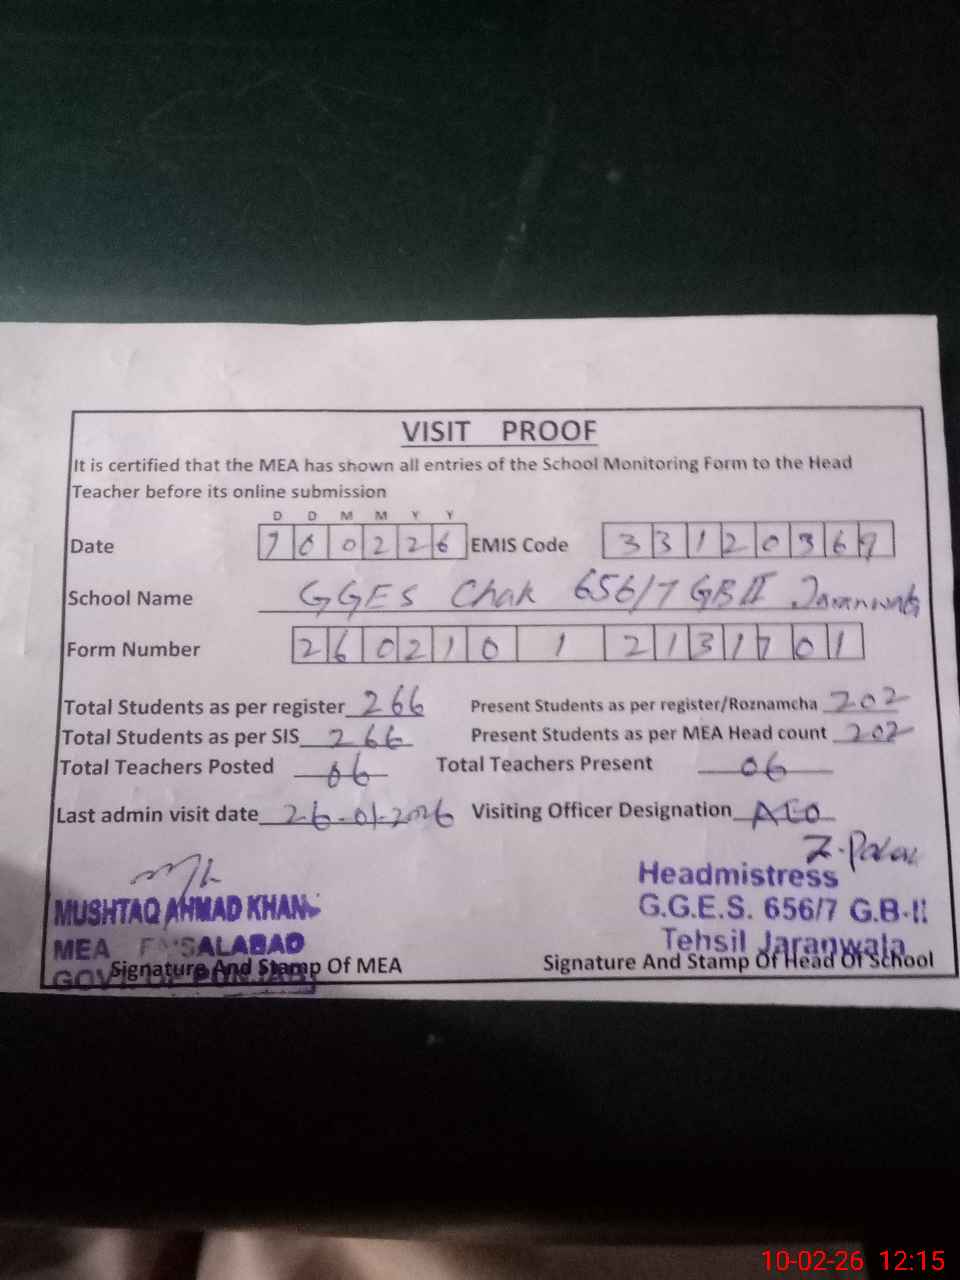 VISIT PROOF
It is certified that the MEA has shown all entries of the School Monitoring Form to the Head
Teacher before its online submission
D D M M Y Y
Date 10 02 26 EMIS Code 33120369
School Name GGES Chak 656/7 GB II Jaranwala
Form Number 26021012131701
Total Students as per register 266 Present Students as per register/Roznamcha 202
Total Students as per SIS 266 Present Students as per MEA Head count 202
Total Teachers Posted 06 Total Teachers Present 06
Last admin visit date 26-01-2026 Visiting Officer Designation AEO
Headmistress
MUSHTAQ AHMAD KHAN G.G.E.S. 656/7 G.B-II
MEA FAISALABAD Tehsil Jaranwala
Signature And Stamp Of MEA Signature And Stamp Of Head Of School
GOVT OF PUNJAB
10-02-26 12:15